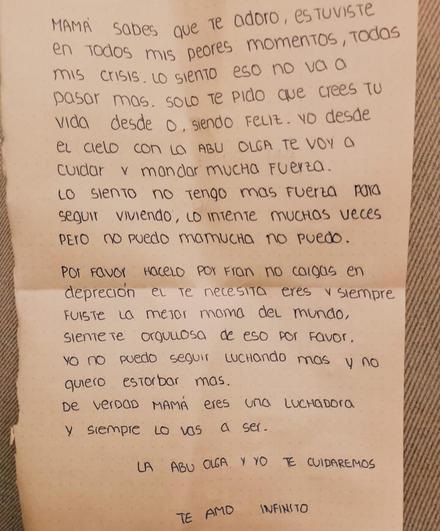 MAMÁ SABES QUE TE ADORO, ESTUVISTE
EN TODOS MIS PEORES MOMENTOS, TODAS
MIS CRISIS. LO SIENTO ESO NO VA A
PASAR MAS. SOLO TE PIDO QUE CREES TU
VIDA DESDE 0, SIENDO FELIZ. YO DESDE
EL CIELO CON LA ABU OLGA TE VOY A
CUIDAR Y MANDAR MUCHA FUERZA.
LO SIENTO NO TENGO MAS FUERZA PARA
SEGUIR VIVIENDO, LO INTENTE MUCHAS VECES
PERO NO PUEDO MAMUCHA NO PUEDO.
POR FAVOR HACELO POR FRAN NO CAIGAS EN
DEPRECIÓN EL TE NECESITA ERES Y SIEMPRE
FUISTE LA MEJOR MAMA DEL MUNDO,
SIENTETE ORGULLOSA DE ESO POR FAVOR.
YO NO PUEDO SEGUIR LUCHANDO MAS Y NO
QUIERO ESTORBAR MAS.
DE VERDAD MAMÁ ERES UNA LUCHADORA
Y SIEMPRE LO VAS A SER.
LA ABU OLGA Y YO TE CUIDAREMOS
TE AMO INFINITO